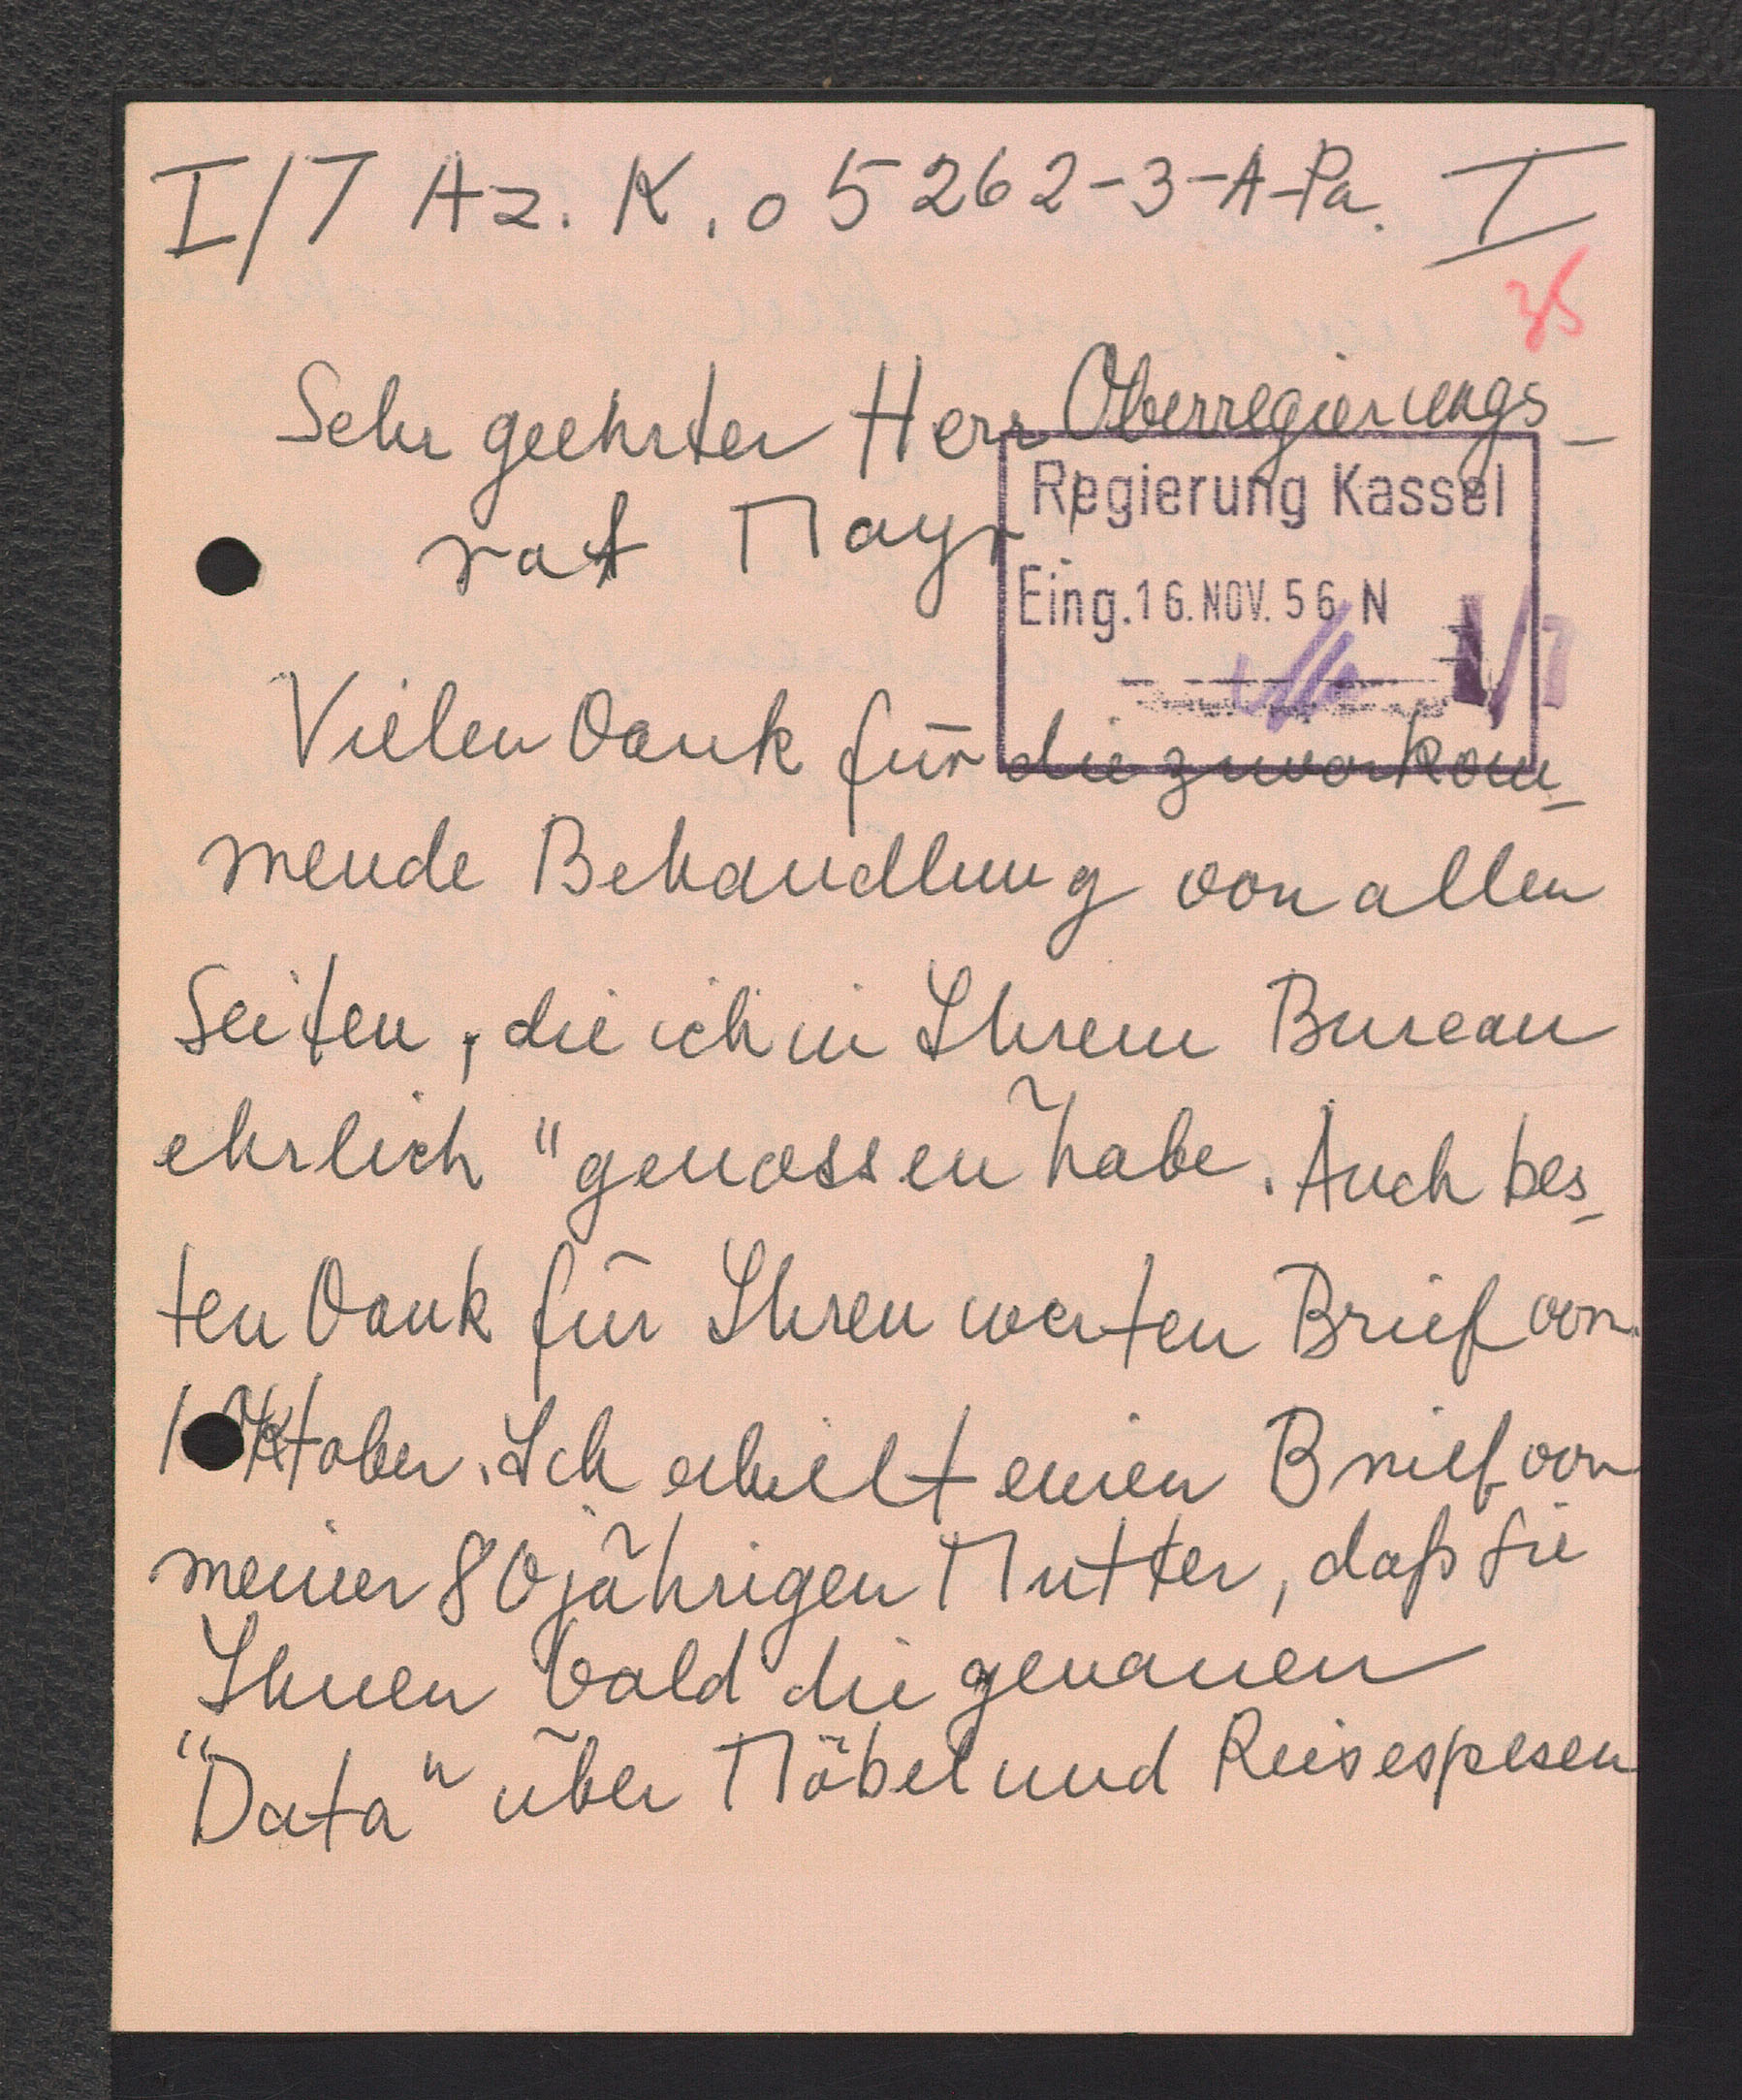 I/7 Az. K. o 5262-3-A-Pa. I
35
Sehr geehrter Herr Oberregierungs-
rat Mayr!
Regierung Kassel
Eing. 16. NOV. 56 N
I/7
Vielen Dank für die zuvorkom-
mende Behandlung von allen
Seiten, die ich in Ihrem Bureau
ehrlich "genossen habe. Auch bes-
ten Dank für Ihren werten Brief vom
1 Oktober. Ich erhielt einen Brief von
meiner 80jährigen Mutter, daß sie
Ihnen bald die genauen
"Data" über Möbel und Reisespesen